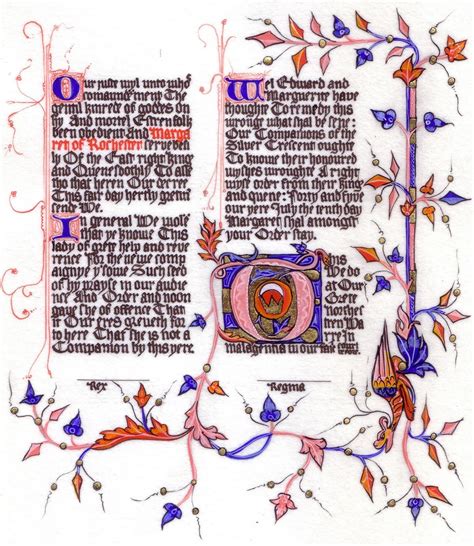 Our juste wyl unto who
comaundment The
gentil kinrede of goddes on
hy And mortel Estren folk
been obedient and Marga
ret of Rochester serveth
ly Of The East right king
and Quene doth To alle
tho that heren Our decree
This fair day hertly gretti
sende We.
In general We wole
That ye knowe This
lady of grete help and reve
rence For the
Such seed
of hy prayse in our audie
nce And Order and noon
have she of offence Than
it Our eres greveth for
to here That she is not a
Companion by this yere.
Rex
Wel Edward and
Marguerite have
thought To remedy this
wrong what shal by seye:
Our Companions of the
Silver Crescent ought
To knowe their honoured
wyshes wrought A right
wyse order from their king
and quene: Forty and fyve
our yere July the tenth day
Margaret shal amongst
your Order stay.
This
We do
at Our
Grete
Northe
rEn Wa
rre In
malagentia in our
Regina